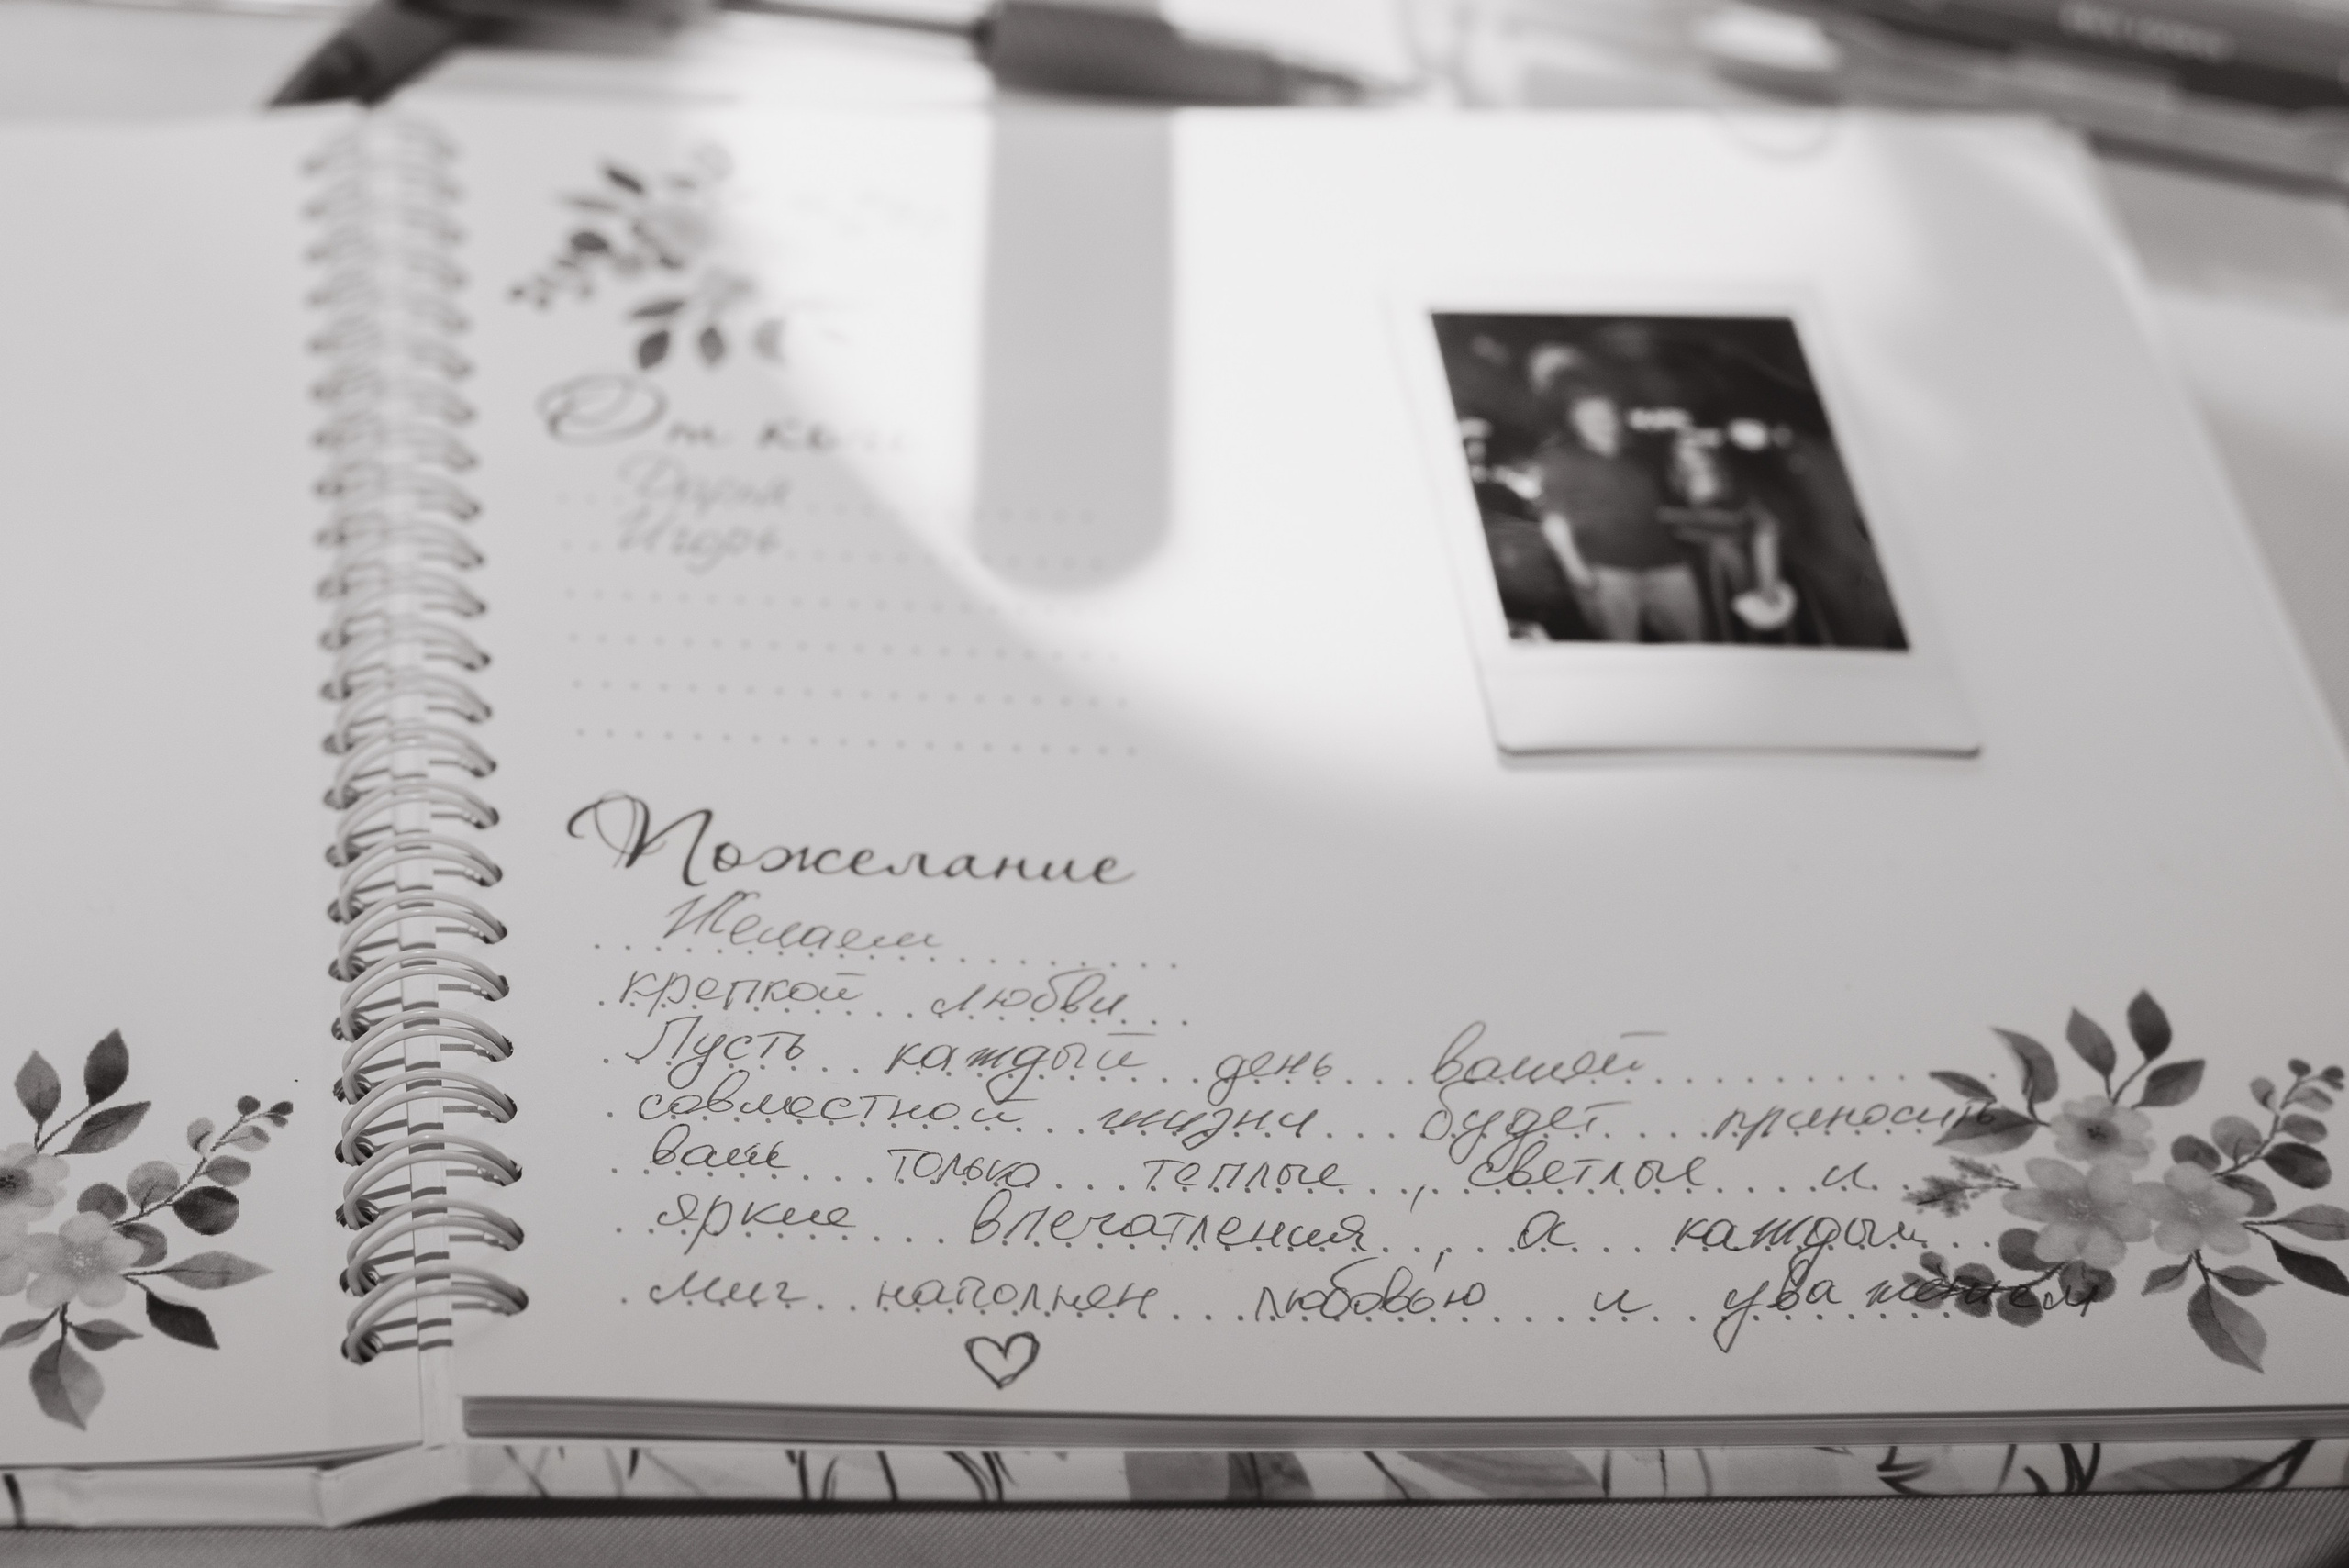 От кого
Дарья
Игорь
Пожелание
Желаем
крепкой любви
Пусть каждый день вашей
совместной жизни будет приносить
вам только теплые, светлые и
яркие впечатления, а каждый
миг наполнен любовью и уважением